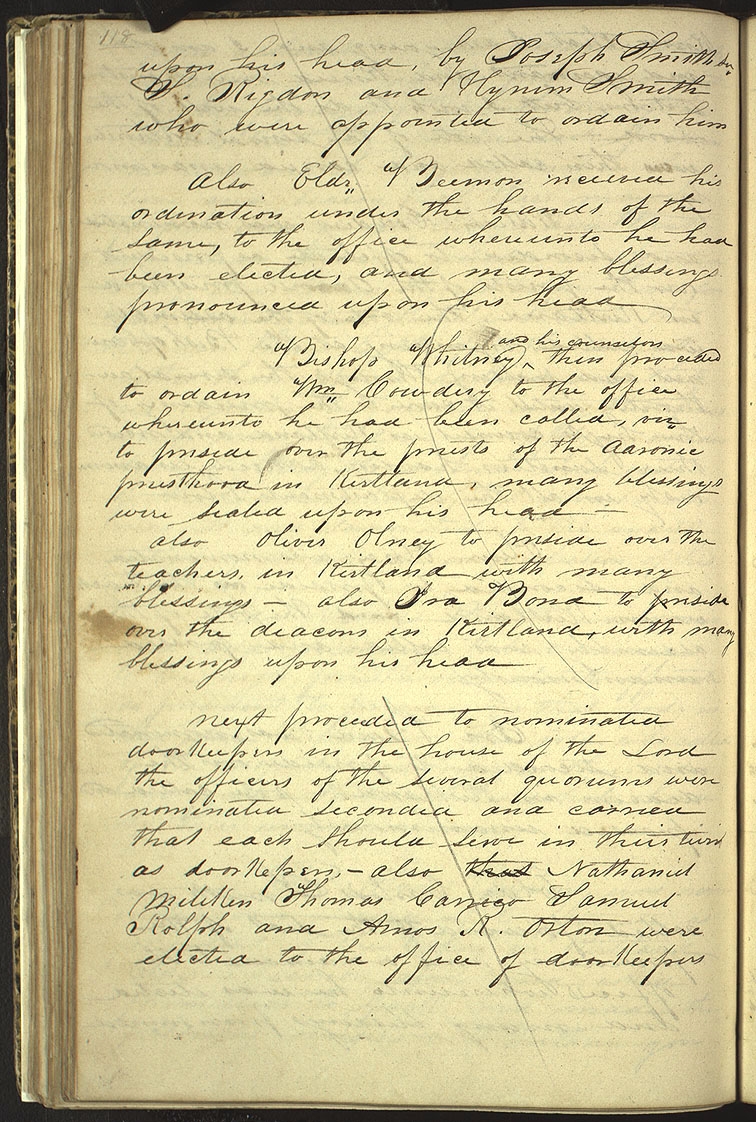 118
upon his head, by Joseph Smith Jr.
S. Rigdon and Hyrum Smith
who were appointed to ordain him
Also Eldr. Beemon received his
ordination under the hands of the
same, to the office whereunto he had
been elected, and many blessings
pronounced upon his head
and his counselors
Bishop Whitney ^ then proceded
to ordain Wm Cowdery to the office
whereunto he had been called, viz
to preside over the priests of the Aaronic
priesthood in Kirtland, many blessings
were sealed upon his head —
also Oliver Olney to preside over the
teachers, in Kirtland with many
blessings — also Ira Bond to preside
over the deacons in Kirtland, with many
blessings upon his head
next proceded to nominated
doorkeepers in the house of the Lord
the officers of the several quorums were
nominated seconded and carried
that each should serve in their turn
as doorkepers, — also that Nathaniel
Miliken Thomas Carrico Samuel
Rolph and Amos R. Orton were
elected to the office of doorkeepers